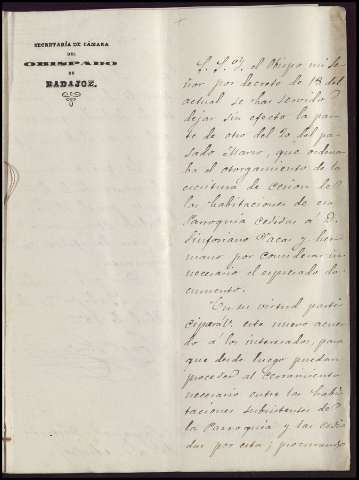 SECRETARÍA DE CÁMARA
DEL
OBISPADO
DE
BADAJOZ.
S. S. Y. el Obispo mi Se-
ñor por decreto de 18 del
actual se ha servido
dejar sin efecto la par-
te de otro del 20 del pa-
sado Marzo, que ordena-
ba el otorgamiento de la
escritura de cesion de
las habitaciones de esa
Parroquia cedidas á D.
Sinforiano Vacas y her-
mano por considerar in-
necesario el espresado do-
cumento.
En su virtud parti-
cipará V. este nuevo acuer-
do á los interesados, para
que desde luego puedan
proceder al cerramiento
necesario entre las habi-
taciones subsistentes de
la Parroquia y las cedi-
das por esta; procurando